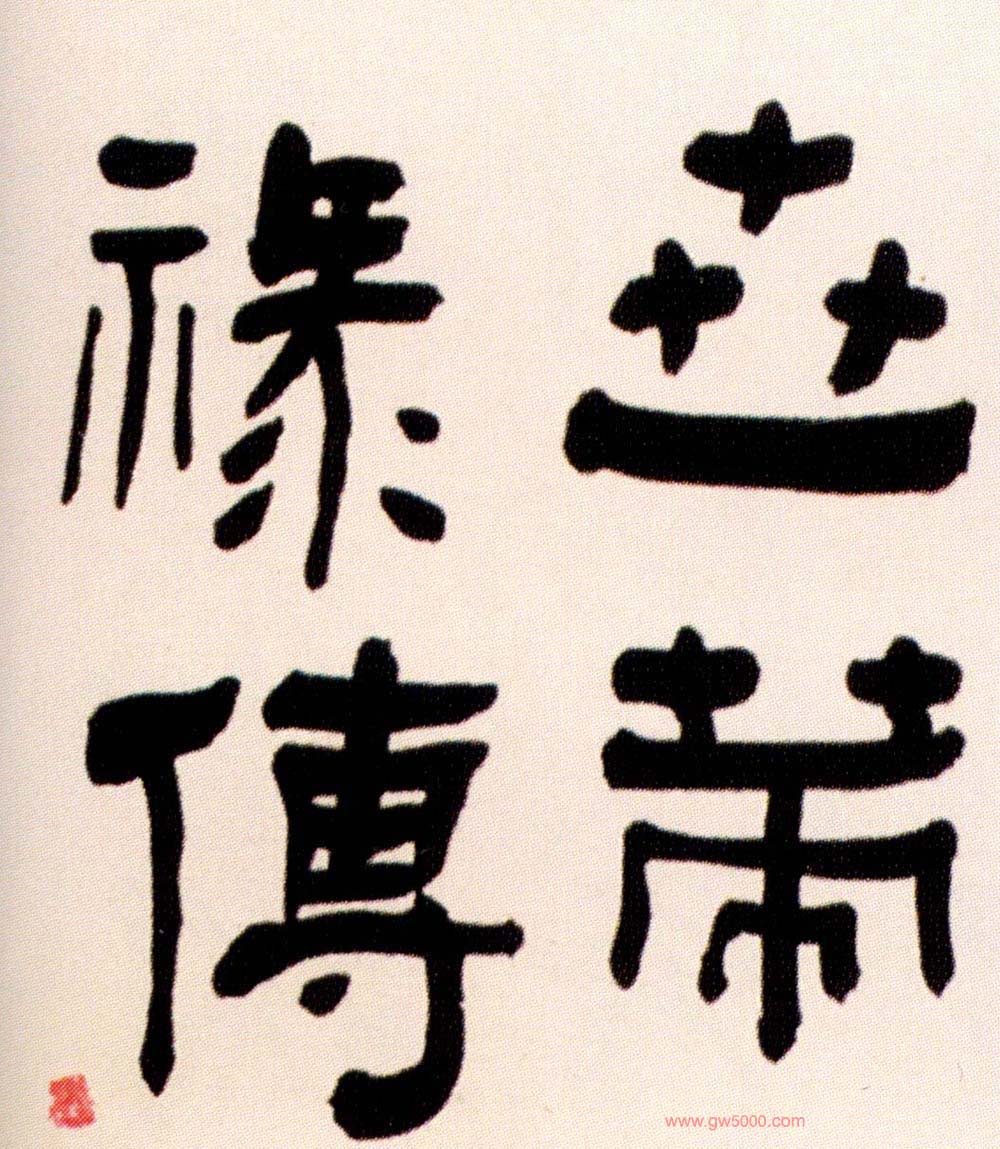 世
祿傳
www.gw5000.com